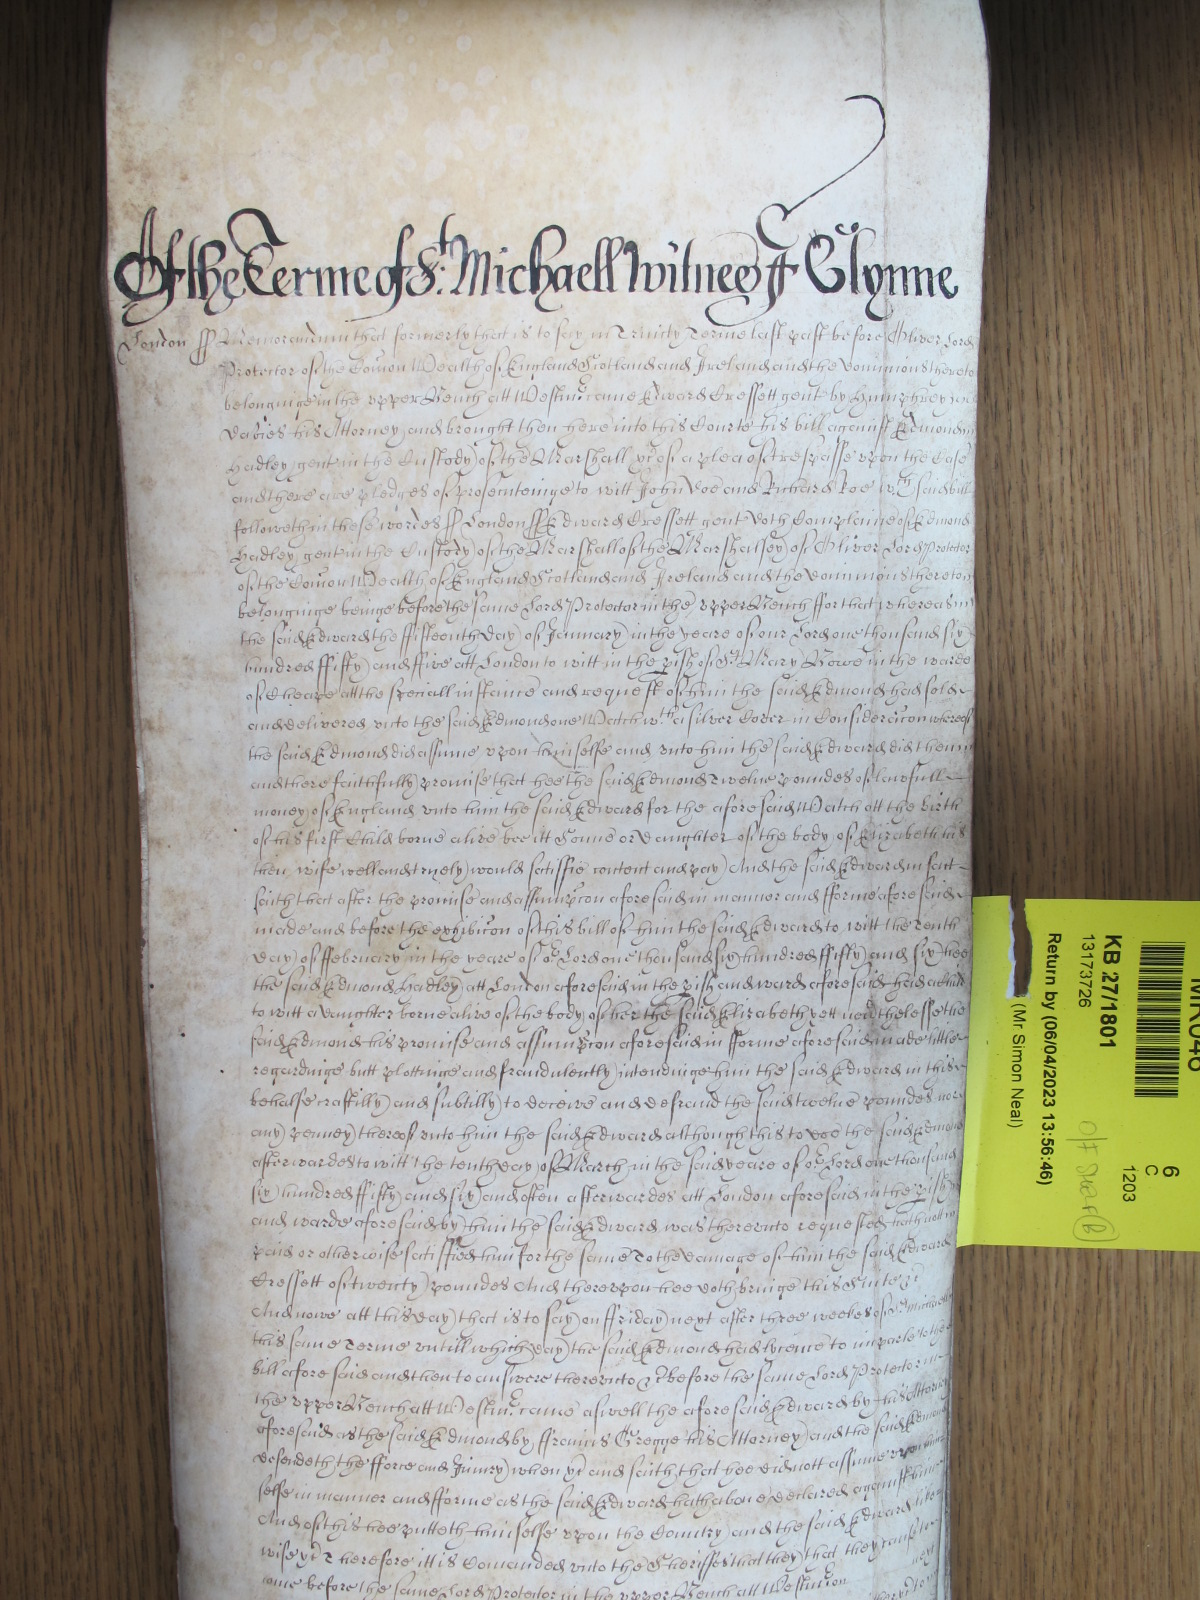 Of the Terme of St. Michaell Witnes J Glynne
London ss Memorandum that formerly that is to say in Trinity Terme last past before Oliver Lord
Protector of the Comon Wealth of England Scotland and Ireland and the Dominions thereto
belonginge in the upper Bench att Westmr. came Edward Cressett gent by Humphrey
Davies his Attorney and brought then here into this Courte his bill against Edmond
Hadley gent in the Custody of the Marshall &c of a plea of trespasse upon the Case
and there are pledges of prosecuteinge to witt John Doe and Richard Roe wch said bill
followeth in these wordes ss London ss Edward Cressett gent doth Complaine of Edmond
Hadley gent in the Custody of the Marshall of the Marshalsey of Oliver Lord Protector
of the Comon Wealth of England Scotland and Ireland and the Dominions thereto
belonginge beinge before the same Lord Protector in the upper Bench ffor that whereas
the said Edward the ffifteenth day of January in the yeare of our Lord one thousand six
hundred ffifty and ffive att London to witt in the pish of St. Mary Bowe in the warde
of Cheape att the speciall instance and request of him the said Edmond had sold
and delivered unto the said Edmond one Watch wth a silver Cover in Consideracon whereof
the said Edmond did assume upon himselfe and unto him the said Edward did then
and there faithfully promise that hee the said Edmond Twelve poundes of lawfull
money of England unto him the said Edward for the aforesaid Watch att the birth
of his first Child borne alive bee itt Sonne or Daughter of the body of Elizabeth his
then wife well and truely would satisfie content and pay And the said Edward in fact
saith that after the promise and assumpcon aforesaid in manner and fforme aforesaid
made and before the exhibicon of this bill of him the said Edward to witt the tenth
day of ffebruary in the yeare of or Lord one thousand six hundred ffifty and six hee
the said Edmond Hadley att London aforesaid in the pish and ward aforesaid had a child
to witt a daughter borne alive of the body of her the said Elizabeth yett nevthelesse the
said Edmond his promise and assumpcon aforesaid in fforme aforesaid made little
regardinge butt plottinge and fraudulently intendinge him the said Edward in this
behalfe craftilly and subtilly to deceive and defraud the said twelve poundes nor
any penney thereof unto him the said Edward although this to doe the said Edmond
afterwardes to witt the tenth day of March in the said yeare of or Lord one thousand
six hundred ffifty and six and often afterwardes att London aforesaid in the pish
and warde aforesaid by him the said Edward was thereunto requested hath not
paid or otherwise satisfied him for the same To the damage of him the said Edward
Cressett of twenty poundes And thereupon hee doth bringe this Suite &c
And nowe att this day that is to say on ffriday next after three weekes of St Michaell
this same Terme untill which day the said Edmond had lycence to imparle to the
bill aforesaid and then to answere thereunto &c before the same Lord Protector in
the upper Bench att Westmr. came aswell the aforesaid Edward by his Attorney
aforesaid as the said Edmond by ffrancis Gregge his Attorney and the said Edmond
defendeth the fforce and Iniury when &c and saith that hee did nott assume upon him
selfe in manner and fforme as the said Edward hath above declared against him
And of this hee putteth himselfe upon the Country and the said Edward like
wise &c Therefore itt is Comanded unto the Sheriffes that they that they cause to
come before the same Lord Protector in the upper Bench att Westm on next
MR046
6
C
1203
KB 27/1801
13173726
(Mr Simon Neal)
Return by (06/04/2023 13:56:46)